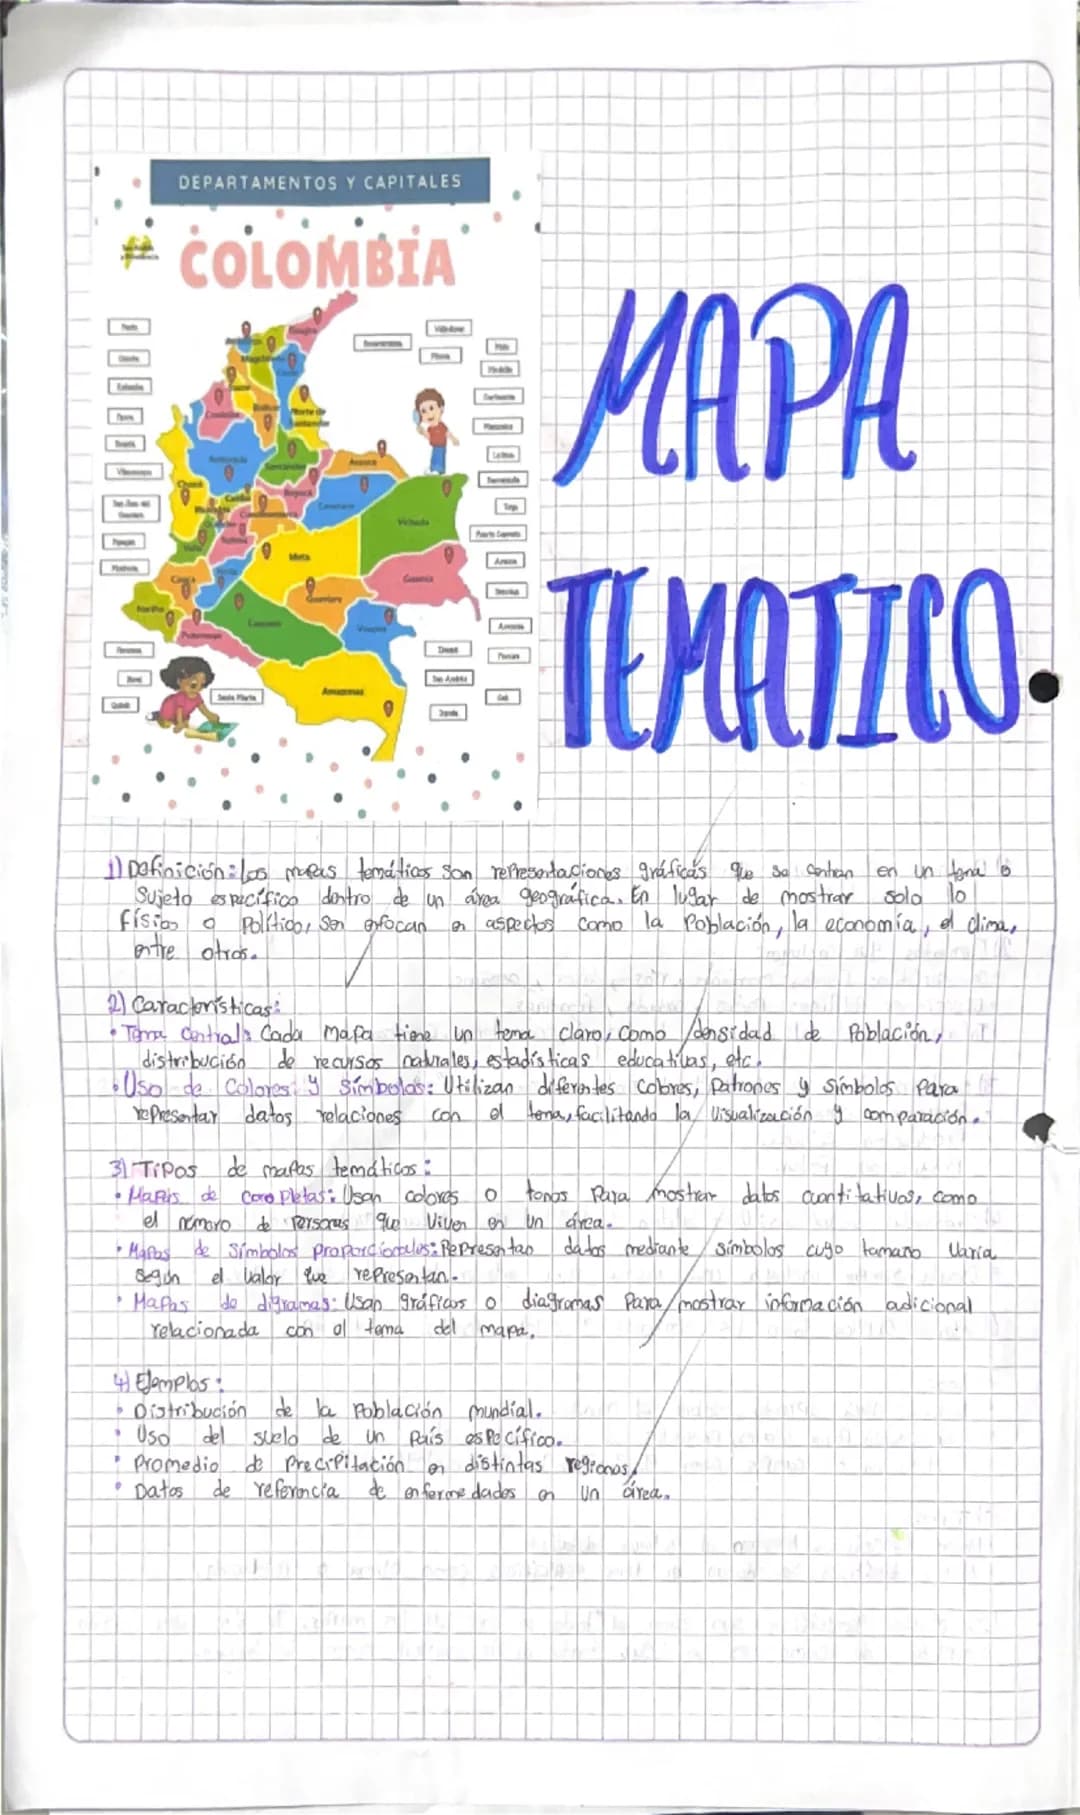 DEPARTAMENTOS Y CAPITALES
COLOMBIA
MAPA
TEMATICO
Guajira
Magdalena
Sucre
Bolívar
Norte de
Santander
Córdoba
Antioquia
Santander
Arauca
Chocó
Boyacá
Casanare
Cundinamarca
Vichada
Tolima
Valle
Meta
Guainía
Cauca
Huila
Guaviare
Nariño
Caquetá
Vaupés
Putumayo
Amazonas
Santa Marta
San Andrés
Puerto Carreño
Cali
1) Definición: Los mapas temáticos son representaciones gráficas que se centran en un tema o
Sujeto específico dentro de un área geográfica. En lugar de mostrar solo lo
físico o Político, Sen enfocan en aspectos como la Población, la economía, el clima,
entre otros.
2) Características:
• Tema Central: Cada Mapa tiene un tema claro, como densidad de Población,
distribución de recursos naturales, estadísticas educativas, etc.
• Uso de Colores y Símbolos: Utilizan diferentes colores, Patrones y símbolos Para
representar datos relaciones con el tema, facilitando la Visualización y comparación.
3) Tipos de mapas temáticos:
• Mapas de coropletas: Usan colores o tonos Para mostrar datos cuantitativos, como
el número de Personas que Viven en un área.
• Mapas de Símbolos proporcionales: Representan datos mediante símbolos cuyo tamaño Varía
Según el valor que representan.
• Mapas de digramas: Usan gráficos o diagramas Para mostrar información adicional
relacionada con el tema del mapa.
4) Ejemplos:
• Distribución de la Población mundial.
• Uso del suelo de un País esPecífico.
• Promedio de PreciPitación en distintas regiones,
• Datos de referencia de enfermedades en Un área.